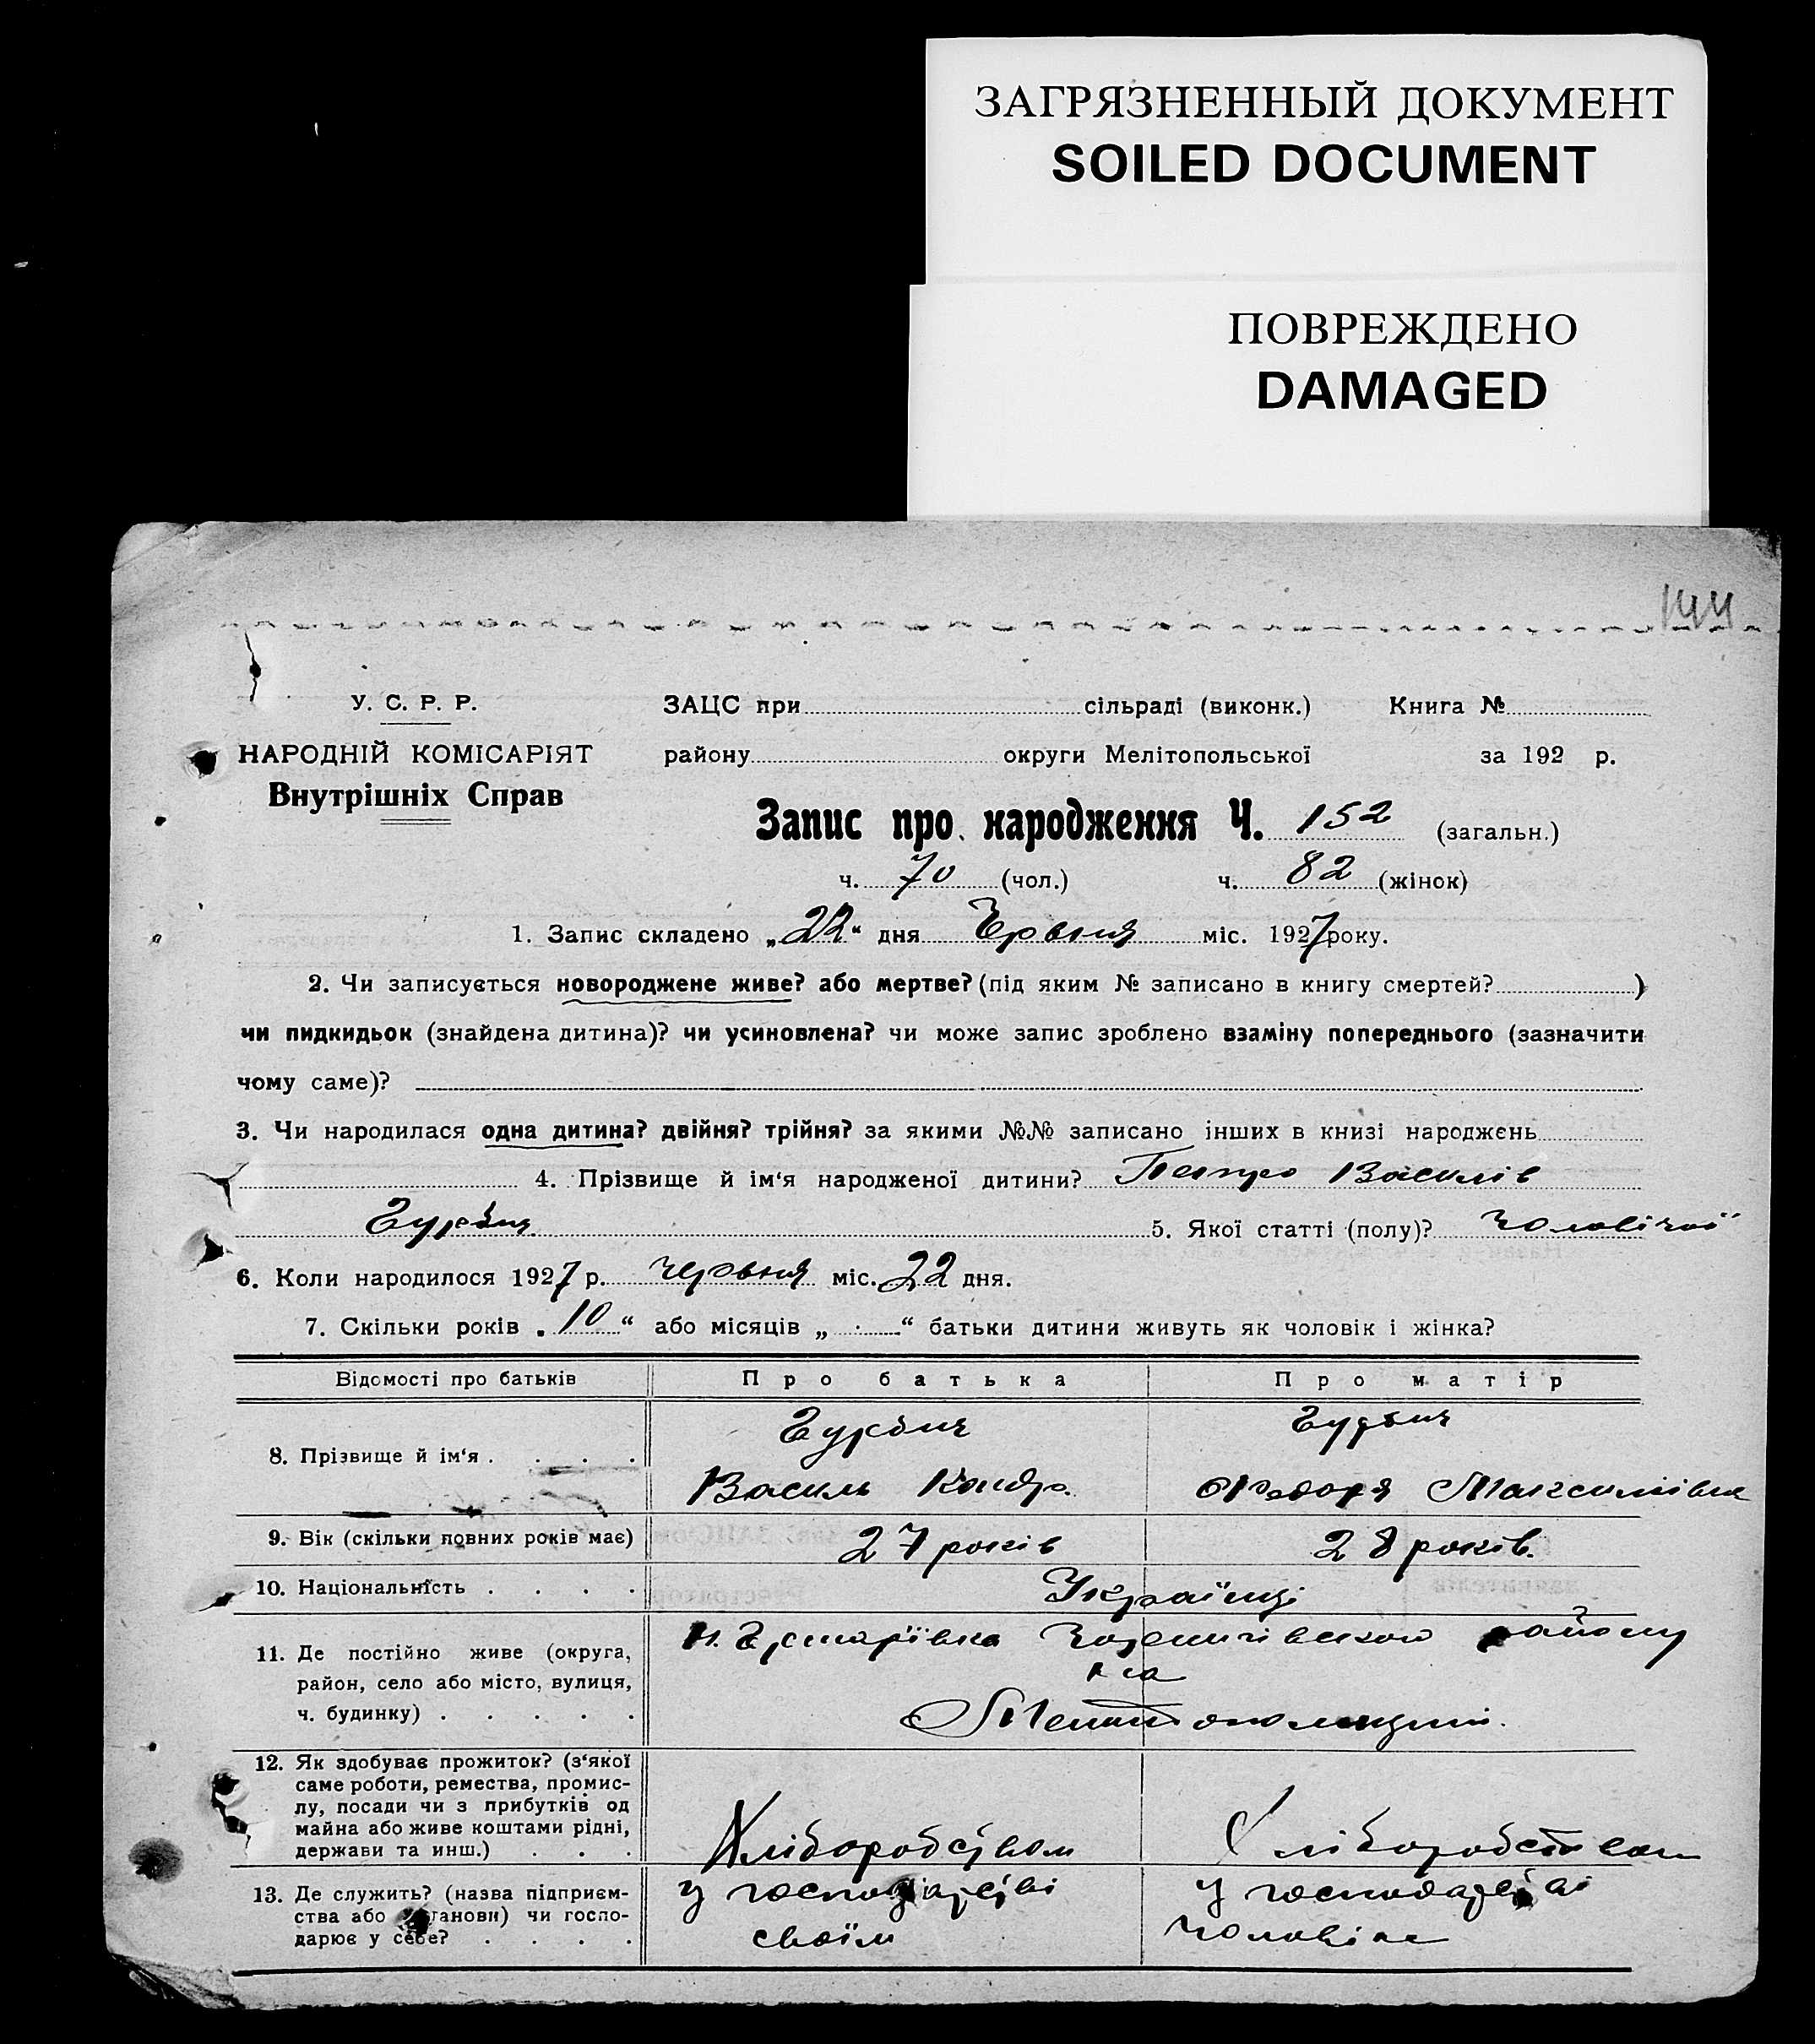 ЗАГРЯЗНЕННЫЙ ДОКУМЕНТ
SOILED DOCUMENT
ПОВРЕЖДЕНО
DAMAGED
144
У. С. Р. Р. ЗАЦС при сільраді (виконк.) Книга №
НАРОДНІЙ КОМІСАРІЯТ району округи Мелітопольської за 192 р.
Внутрішніх Справ
Запис про народження Ч. 152 (загальн.)
ч. 70 (чол.) ч. 82 (жінок)
1. Запис складено „22“ дня Червня міс. 1927 року.
2. Чи записується новороджене живе? або мертве? (під яким № записано в книгу смертей? )
чи пидкидьок (знайдена дитина)? чи усиновлена? чи може запис зроблено взаміну попереднього (зазначити
чому саме)?
3. Чи народилася одна дитина? двійня? трійня? за якими №№ записано інших в книзі народжень
4. Прізвище й ім‘я народженої дитини? Петро Василів
5. Якої статті (полу)? чоловічої
6. Коли народилося 1927 р. червня міс. 22 дня.
7. Скільки років „10“ або місяців „ “ батьки дитини живуть як чоловік і жінка?
Відомості про батьків Про батька Про матір
8. Прізвище й ім‘я . . . .
Василь Кондр. Федоря Максимівна
9. Вік (скільки повних років має) 27 років 28 років.
10. Національність . . . . Українці
11. Де постійно живе (округа,
район, село або місто, вулиця,
ч. будинку) . . . . .
району
на
Мелітопольщині.
12. Як здобуває прожиток? (з‘якої
саме роботи, ремества, промис-
лу, посади чи з прибутків од
майна або живе коштами рідні,
держави та инш.) . . .
Хліборобством Хліборобством
13. Де служить? (назва підприєм-
ства або установи) чи госпо-
дарює у себе? . . . .
у господарстві у господарстві
своїм чоловіка